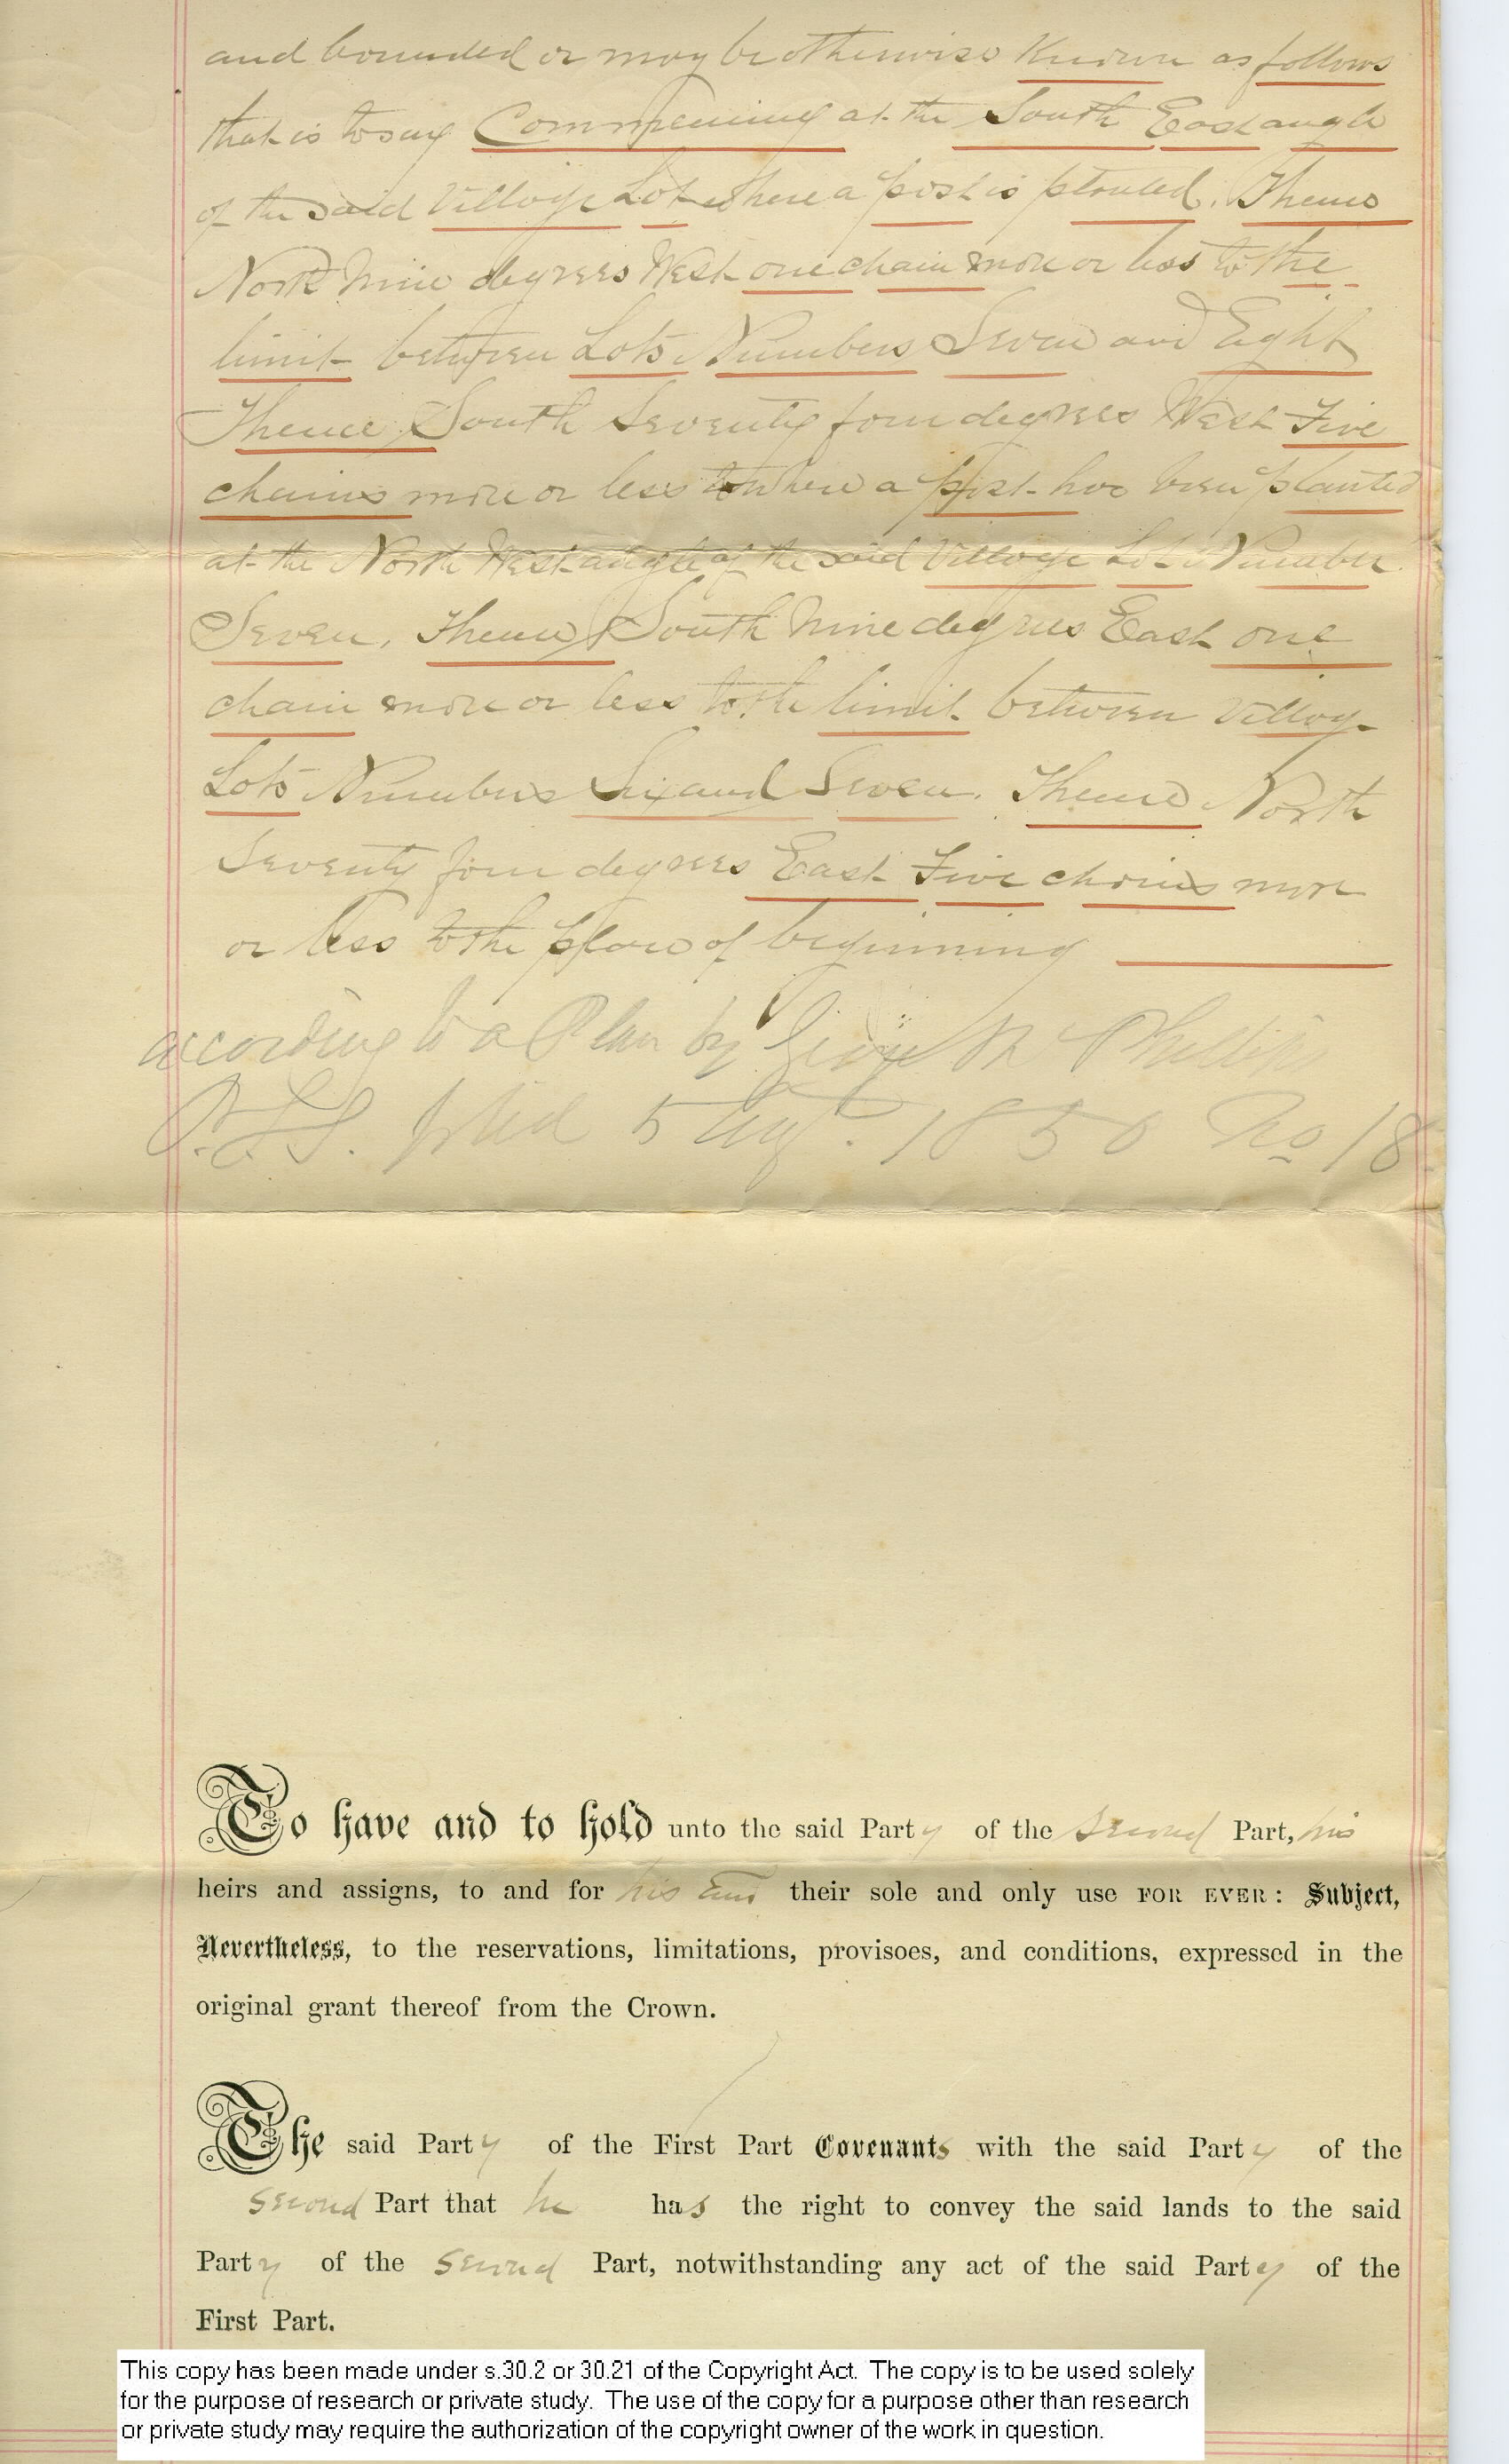 and bounded or may be otherwise Known as follows
that is to say Commencing at the South East angle
of the said Village Lot where a post is planted. Thence
North Nine degrees West one chain more or less to the
limit between Lots Numbers Seven and Eight
Thence South Seventy four degrees West Five
chains more or less to where a post has been planted
at the North West angle of the said Village Lot Number
Seven, Thence South Nine degrees East one
chain more or less to the limit between Village
Lots Numbers Six and Seven. Thence North
Seventy four degrees East Five chains more
or less to the place of beginning
according to a Plan by George McPhillips
P.L.S. filed 5 Augt. 1850 No 18
To have and to hold unto the said Party of the Second Part, his
heirs and assigns, to and for his and their sole and only use FOR EVER: Subject,
Nevertheless, to the reservations, limitations, provisoes, and conditions, expressed in the
original grant thereof from the Crown.
The said Party of the First Part Covenants with the said Party of the
Second Part that he has the right to convey the said lands to the said
Party of the Second Part, notwithstanding any act of the said Party of the
First Part.
This copy has been made under s.30.2 or 30.21 of the Copyright Act. The copy is to be used solely
for the purpose of research or private study. The use of the copy for a purpose other than research
or private study may require the authorization of the copyright owner of the work in question.